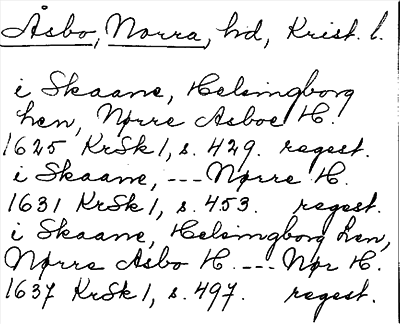 Åsbo, Norra, hd, Krist. l.
i Skaane, Helsingborg
len, Nørre Asboe H.
1625 KrSk 1, s. 429. regest.
i Skaane, --- Nørre H.
1631 KrSk 1, s. 453. regest.
i Skaane, Helsingborg len,
Nørre Asbo H. --- Nør H.
1637 KrSk 1, s. 497. regest.